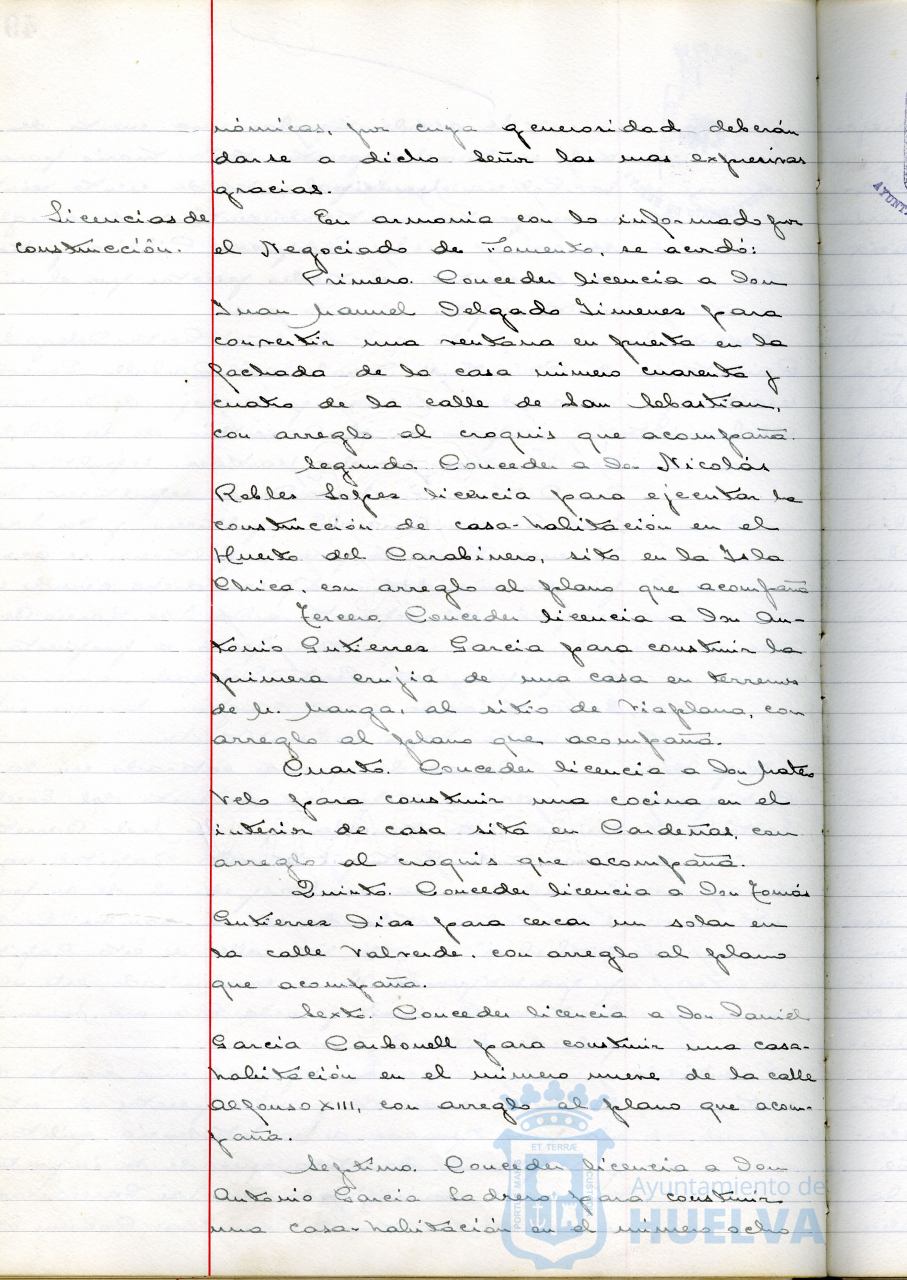 nómicas, por cuya generosidad deberán
darse a dicho Señor las mas expresivas
gracias.
Licencias de
construcción.
En armonia con lo informado por
el Negociado de Fomento, se acordó:
Primero. Conceder licencia a Don
Juan Manuel Delgado Jimenez para
convertir una ventana en puerta en la
fachada de la casa número cuarenta y
cuatro de la calle de San Sebastian,
con arreglo al croquis que acompaña.
Segundo. Conceder a Don Nicolás
Robles Lopez licencia para ejecutar la
construcción de casa-habitación en el
Huerto del Carabinero, sito en la Isla
Chica, con arreglo al plano que acompaña
Tercero. Conceder licencia a Don An-
tonio Gutierrez Garcia para construir la
primera crujia de una casa en terrenos
de M. Manga, al sitio de Viaplana, con
arreglo al plano que acompaña.
Cuarto. Conceder licencia a Don Mateo
Velo para construir una cocina en el
interior de casa sita en Cardeñas, con
arreglo al croquis que acompaña.
Quinto. Conceder licencia a Don Tomás
Gutierrez Dias para cercar un solar en
la calle Valverde, con arreglo al plano
que acompaña.
Sexto. Conceder licencia a Don Daniel
Garcia Carbonell para construir una casa-
habitación en el número nueve de la calle
Alfonso XIII, con arreglo al plano que acom-
paña.
Septimo. Conceder licencia a Don
Antonio Garcia Ladrero para construir
una casa-habitación en el número ocho
ET TERRÆ
PORTUS MARIS
CUSTODIA
Ayuntamiento de
HUELVA
AYUNT